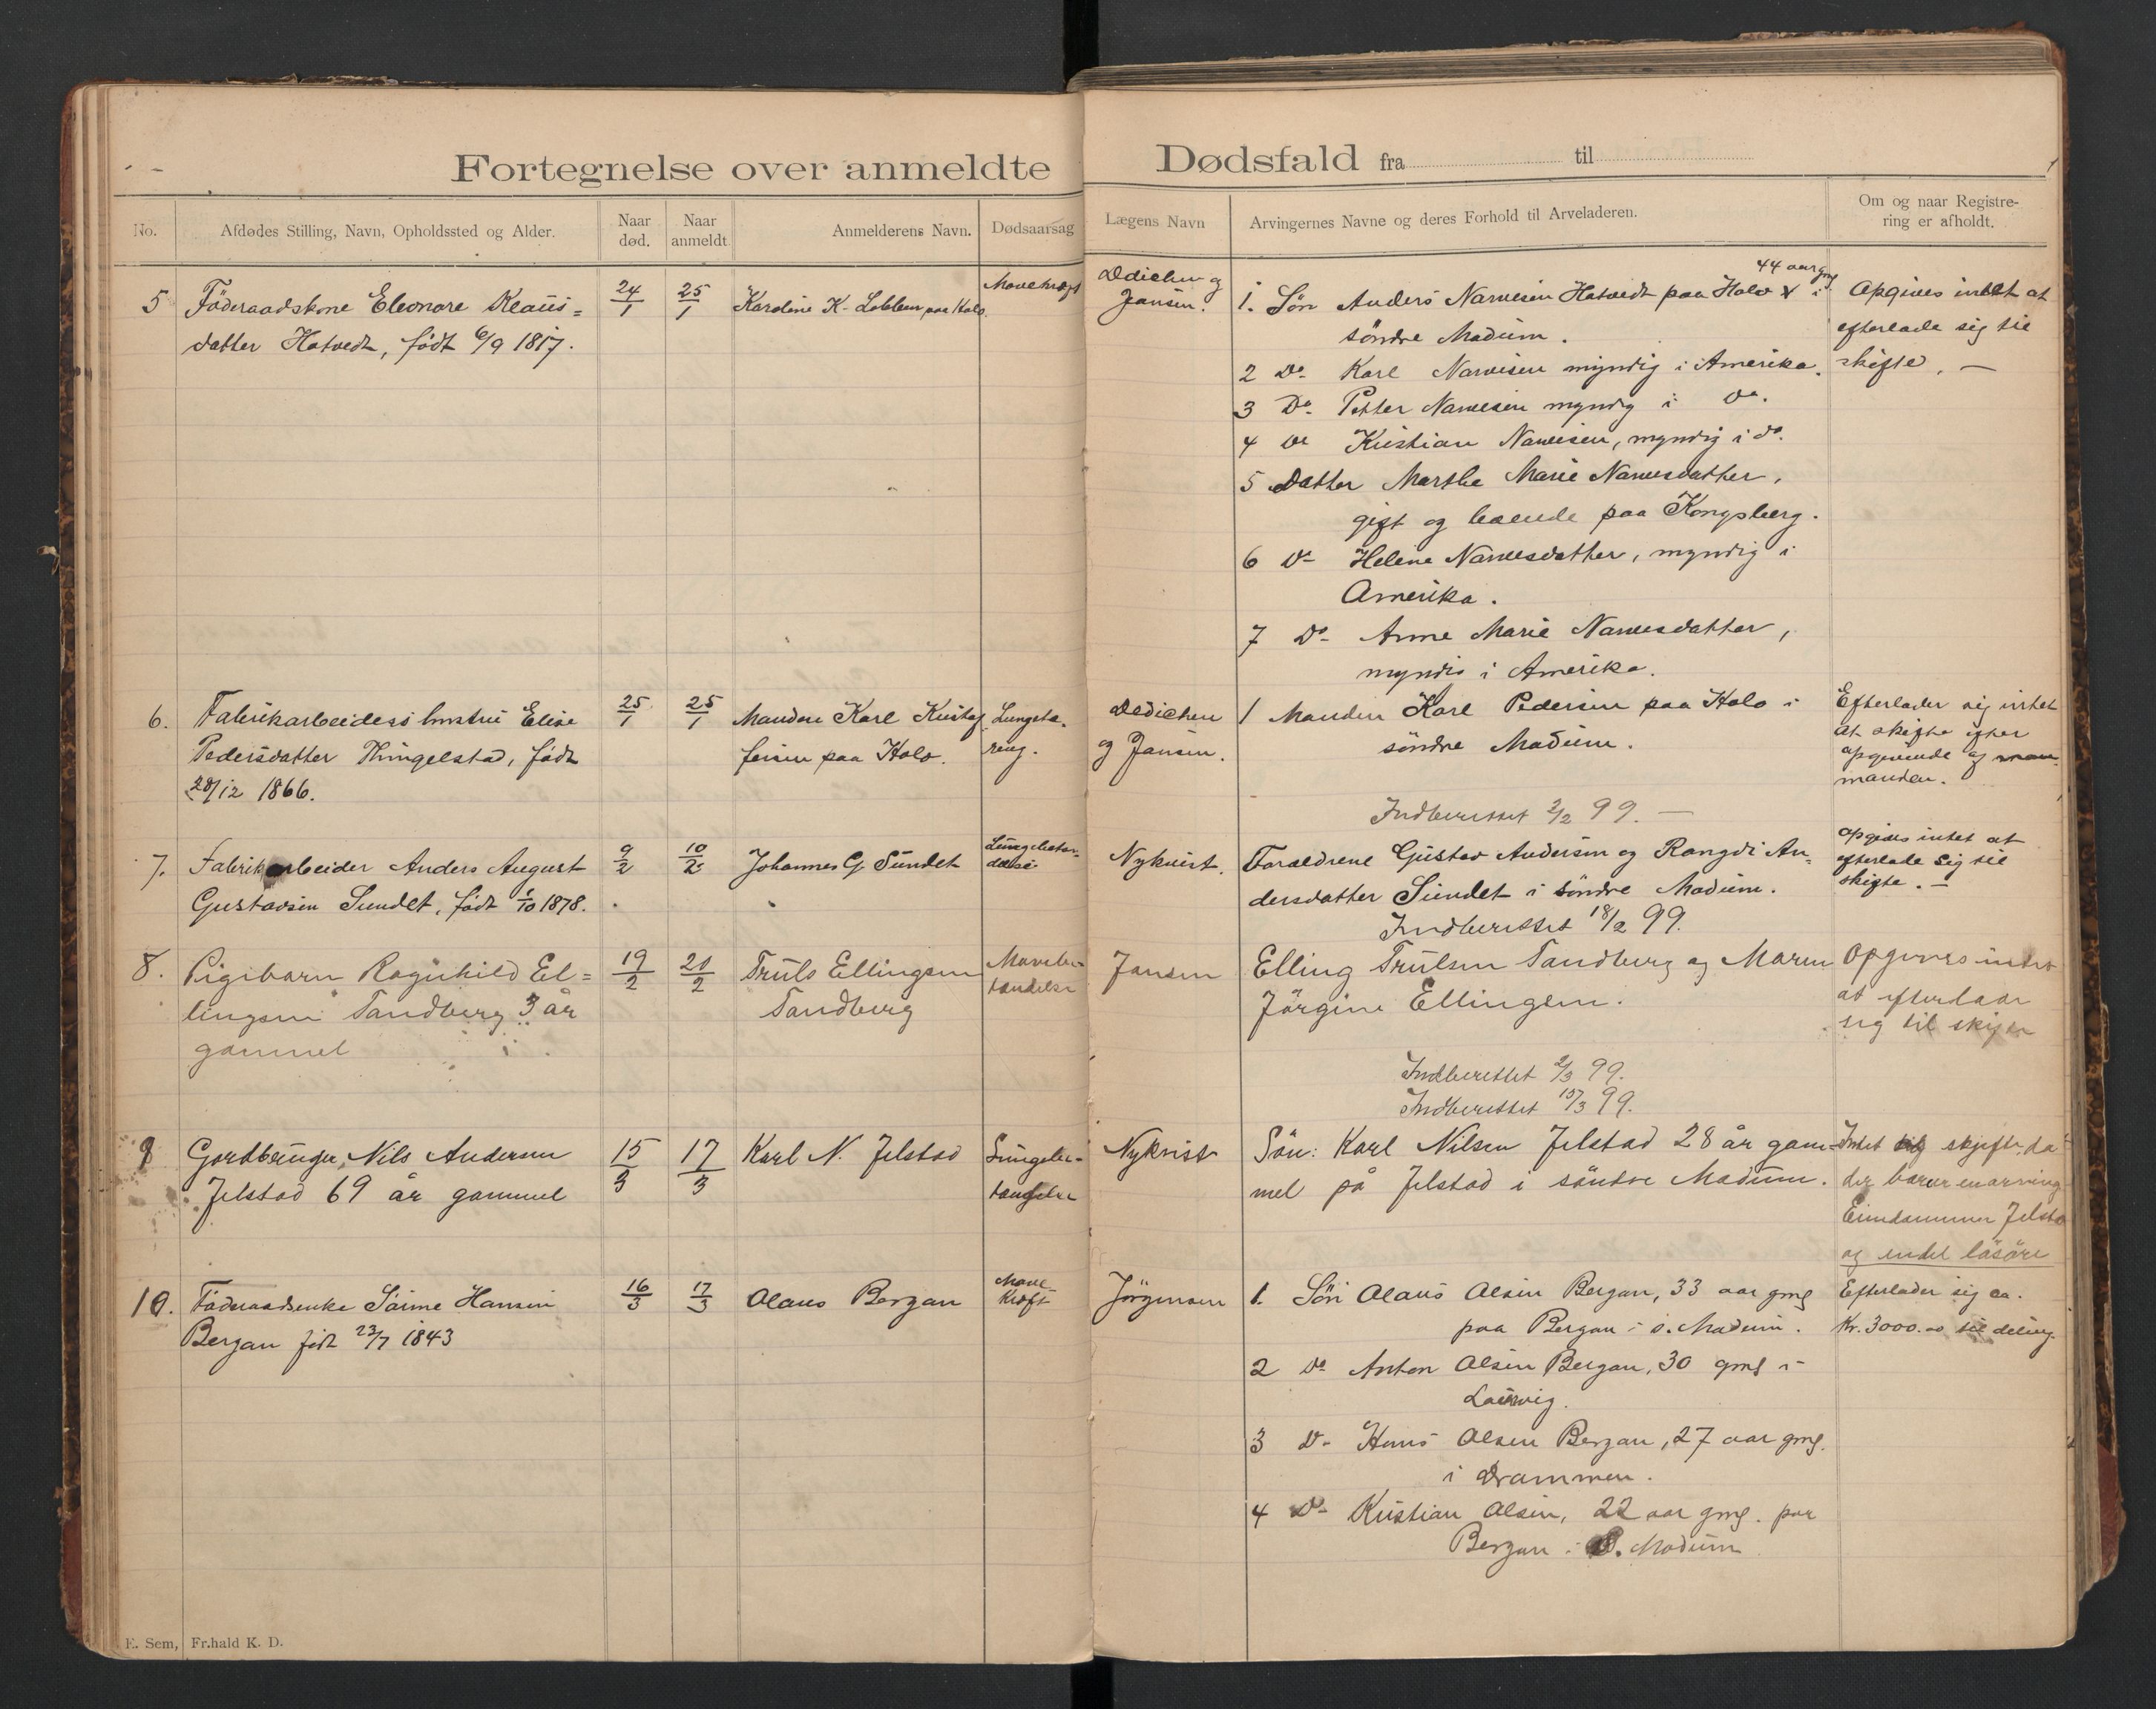 Fortegnelse over anmeldte Dødsfald fra til
No. Afdødes Stilling, Navn, Opholdssted og Alder. Naar død. Naar anmeldt Anmelderens Navn. Dødsaarsag Lægens Navn Arvingernes Navne og deres Forhold til Arveladeren. Om og naar Registrering er afholdt.
5 Föderaadskone Eleonore Klaus=
datter Hotvedt, født 6/9 1817.
24/1 25/1 Karoline K. Lobben paa Holo.
Mavekræft
Dedichen og
Jansen.
44 aar gml
1. Søn Anders Narvesen Hotvedt paa Holo i
söndre Modum.
2 Do Karl Narvesen myndig i Amerika.
3 Do Petter Narvesen myndig i do.
4 Do Kristian Narvesen, myndig i do.
5 Datter Marthe Marie Narvesdatter,
gift og boende paa Kongsberg.
6 Do Helene Narvesdatter, myndig i
Amerika.
7 Do Anne Marie Narvesdatter,
myndig i Amerika.
Opgives intet at
efterlade sig til
skifte. —
6. Fabrikarbeiders hustru Elise
Pedersdatter Thingelstad, født
28/12 1866.
25/1 25/1 Manden Karl Kristof
fersen paa Holo.
Lungetæ-
ring.
Dedichen
og Jansen.
1 Manden Karl Pedersen paa Holo i
söndre Modum.
Indberettet 2/2 99. —
Efterlader sig intet
at skifte efter
opgivende af
manden.
7. Fabrikarbeider Anders August
Gustavsen Sundet, født 1/10 1878.
9/2 10/2 Johannes G. Sundet
Lungebeten-
delse
Nykvist.
Forældrene Gustav Andersen og Rangdi An-
dersdatter Sundet i söndre Modum.
Indberettet 18/2 99.
opgives intet at
efterlade sig til
skifte. —
8. Pigebarn Ragnhild El=
lingsen Sandberg 3 år
gammel
19/2 21/2 Truls Ellingsen
Sandberg
Jansen
Elling Trulsen Sandberg og Maren
Jörgine Ellingsen.
Opgives intet
at efterlade
sig til skifte
Indberettet 2/3 99.
Indberettet 15/3 99.
9 Gordbruger Nils Andersen
Jelstad 69 år gammel
15/3 17/3 Karl N. Jelstad
Nykvist
Sön: Karl Nilsen Jelstad 28 år gam-
mel på Jelstad i söndre Modum.
Intet skifte da
der bare er en arving
Eiendommen Jelstad
og endel lösöre
10. Föderaadsenke Hansen
Bergan født 23/7 1843
16/3 17/3 Olaus Bergan
Mave
kræft
Jörgensen
1. Søn Olaus Olsen Bergan, 33 aar gml
paa Bergan i s. Modum.
2 Do Anton Olsen Bergan, 30 gml i
Laurvig.
3 Do Hans Olsen Bergan, 27 aar gml.
i Drammen.
4 Do Kristian Olsen, 22 aar gml. paa
Bergan i S. Modum
Efterlader sig ca.
Kr. 3000.00 til deling.
E. Sem, Fr.hald K. D.